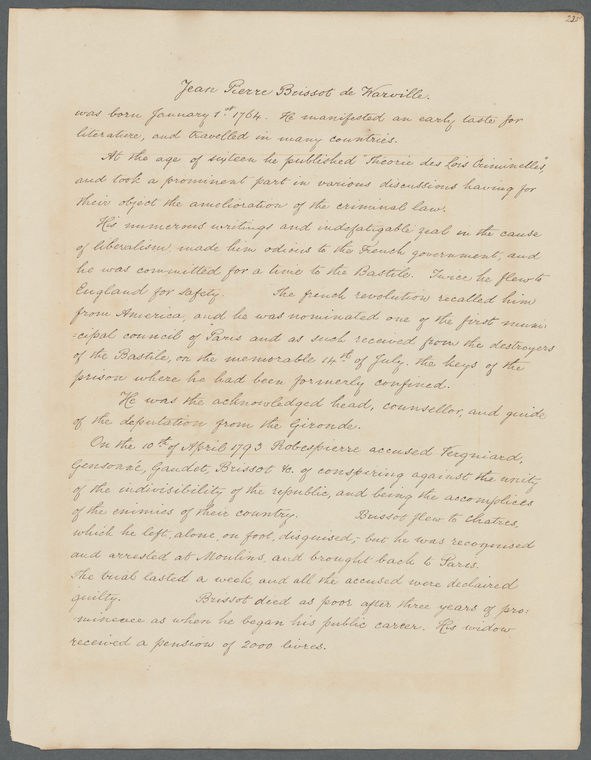 Jean Pierre Brissot de Warville.
was born January 1st 1764. He manifested an early taste for
literature, and travelled in many countries.
At the age of sixteen he published "Theorie des Lois Criminelles",
and took a prominent part in various discussions having for
their object the amelioration of the criminal law.
His numerous writings and indefatigable zeal in the cause
of liberalism, made him odious to the French government, and
he was committed for a time to the Bastile. Twice he flew to
England for safety. The french revolution recalled him
from America, and he was nominated one of the first muni-
-cipal council of Paris and as such received from the destroyers
of the Bastile, on the memorable 14th of July, the keys of the
prison where he had been formerly confined.
He was the acknowledged head, counsellor, and guide
of the deputation from the Gironde.
On the 10th of April 1793 Robespierre accused Vergniard,
Gensonné, Gaudet, Brissot &c. of conspiring against the unity
of the indivisibility of the republic, and being the accomplices
of the enimies of their country. Brissot flew to Chatres,
which he left, alone, on foot, disguised; but he was recognised
and arrested at Moulins, and brought back to Paris.
The trial lasted a week, and all the accused were declaired
guilty. Brissot died as poor after three years of pro:
minence as when he began his public career. His widow
received a pension of 2000 livres.